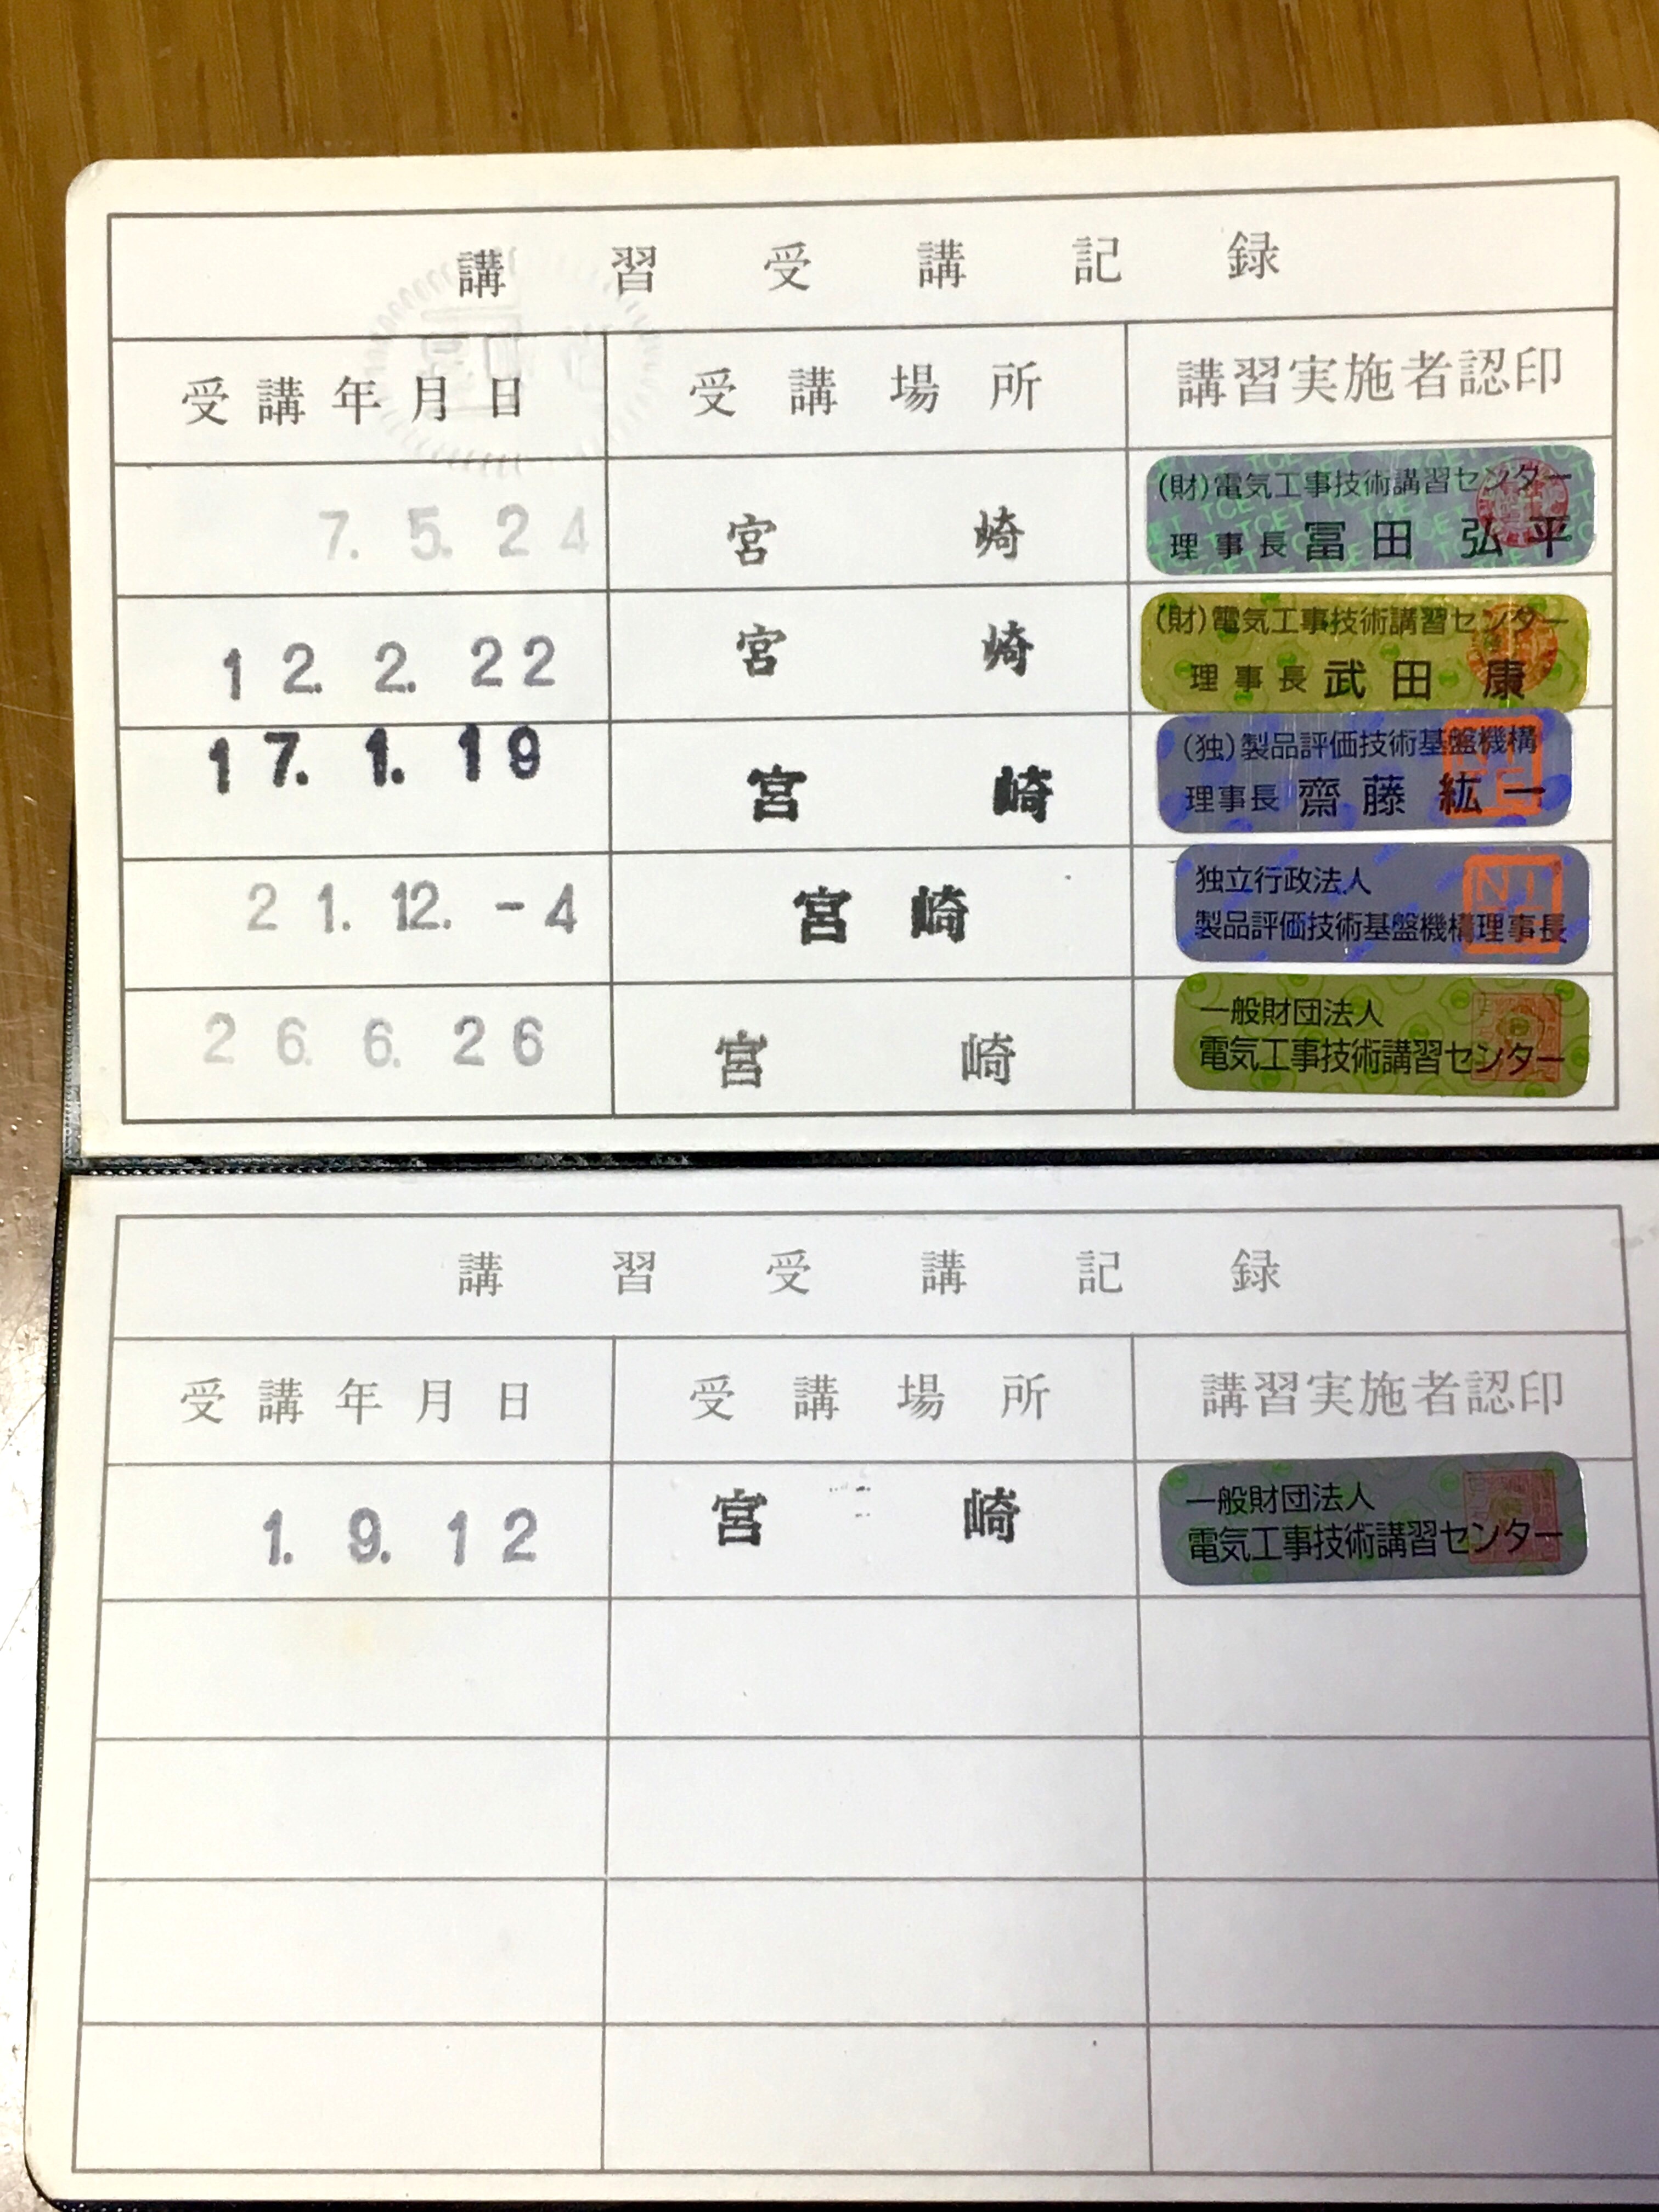 講習受講記録
受講年月日 受講場所 講習実施者認印
7. 5. 24 宮崎 (財)電気工事技術講習センター
理事長 冨田 弘平
12. 2. 22 宮崎 (財)電気工事技術講習センター
理事長 武田 康
17. 1. 19 宮崎 (独)製品評価技術基盤機構
理事長 齋藤 紘一
21. 12. -4 宮崎 独立行政法人
製品評価技術基盤機構理事長
26. 6. 26 宮崎 一般財団法人
電気工事技術講習センター
講習受講記録
受講年月日 受講場所 講習実施者認印
1. 9. 12 宮崎 一般財団法人
電気工事技術講習センター